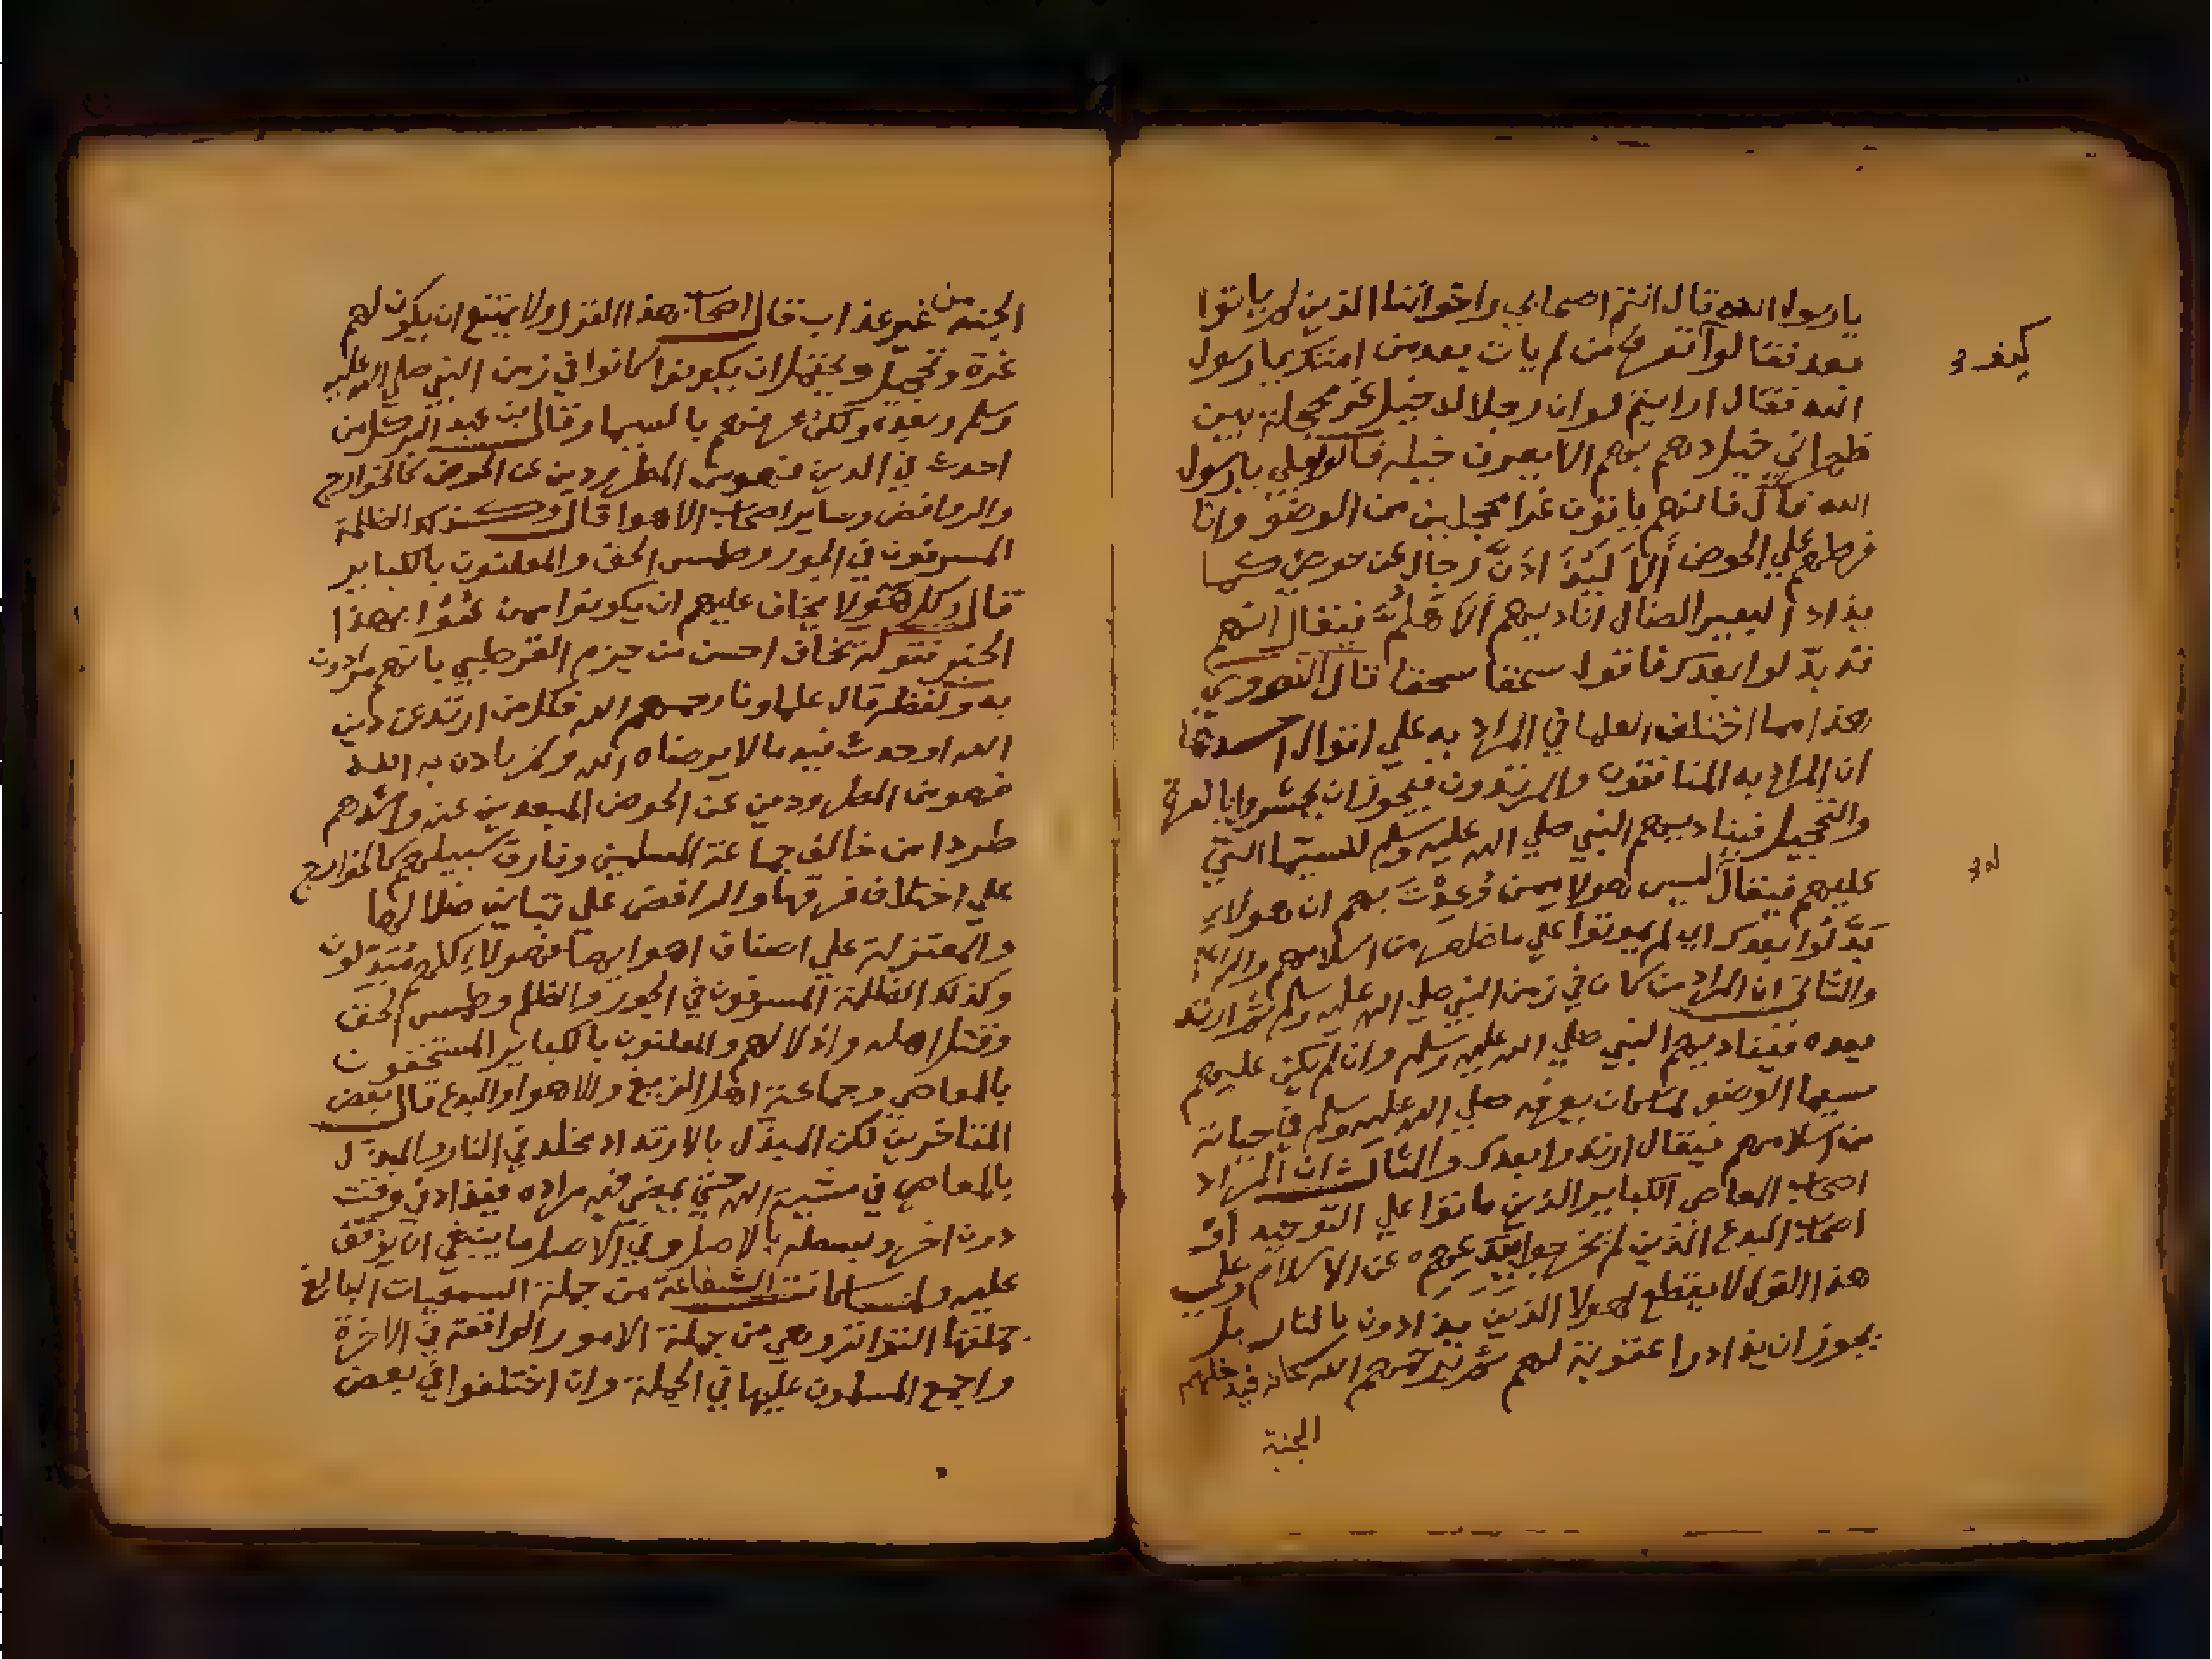 يارسول الله قال انتم اصحابي واخواننا الذين لم ياتوا
بعد فقالوا كيف تعرف من لم يات بعد من امتك يا رسول
الله فقال ارايتم لو ان رجلا له خيل غر محجلة بين
ظهراني خيل دهم بهم الا يعرف خيله قالوا بلي يا رسول
الله قال فانهم ياتون غرا محجلين من الوضو وانا
فرطهم علي الحوض ألا لَيُذَادَنَّ رجال عن حوضي كما
يذاد البعير الضال اناديهم ألا هلمَّ فيقال انهم
قد بدّلوا بعدك فاقول سحقا سحقا قال النووي
هذا مما اختلف العلما في المراد به علي اقوال احدها
ان المراد به المنافقون والمرتدون فيجوز ان يحشروا بالغرة
والتحجيل فيناديهم النبي صلي الله عليه وسلم للسيما التي
عليهم فيقال ليس هولا ممن وُعِدْتَ بهم ان هولاء
بَدَّلُوا بعدك اي لم يموتوا علي ما ظهر من اسلامهم
والثاني ان المراد من كان في زمن النبي صلي الله عليه وسلم ثم ارتد
بعده فيناديهم النبي صلي الله عليه وسلم وان لم يكن عليهم
سيما الوضو لما كان يعرفه صلي الله عليه وسلم في حياته
من اسلامهم فيقال ارتدوا بعدك والثالث ان المراد
اصحاب المعاصي الكباير الذين ماتوا علي التوحيد او
اصحاب البدع الذين لم يخرجوا ببدعهم عن الاسلام وعلي
هذا القول لا يقطع لهولا الذين يذادون بالنار بل
يجوز ان يذادوا عقوبة لهم ثم يرحمهم الله سبحانه فيدخلهم
الجنة
كيف
الجنة من غير عذاب قال اصحاب هذا القول ولا يمتنع ان يكون لهم
غرة وتحجيل ويحتمل ان يكونوا كانوا في زمن النبي صلي الله عليه
وسلم وبعده ولكن عرفهم بالسيما وقال ابن عبد البر كل من
احدث في الدين فهو من المطرودين عن الحوض كالخوارج
والروافض وساير اصحاب الاهوا قال وكذلك الظلمة
المسرفون في الجور وطمس الحق والمعلنون بالكباير
قال وكل هولا يخاف عليهم ان يكونوا ممن عُنُوا بهذا
الخبر فقوله يخاف احسن من جزم القرطبي بانهم مرادون
به ولفظه قال علماونا رحمهم الله فكل من ارتد عن دين
الله او حدث فيه مالا يرضاه الله ولم ياذن به الله
فهو من المطرودين عن الحوض المبعدين عنه واشدهم
طردا من خالف جماعة المسلمين وفارق سبيلهم كالخوارج
علي اختلاف فرقها والروافض علي تباين ضلالها
والمعتزلة علي اصناف اهوايها فهولاء كلهم مُبَدِّلون
وكذلك الظلمة المسرفون في الجور والظلم وطمس الحق
وقتل اهله واذلالهم والمعلنون بالكباير المستخفون
بالمعاصي وجماعة اهل الزيغ والاهوا والبدع قال بعض
المتاخرين لكن المبدّل بالارتداد مخلد في النار والمبدّل
بالمعاصي في مشية الله حتي يمضي فيه مراده فيذاد في وقت
دون اخر وبعمله بالاصل وفي الاصل ما ينبغي ان يوقف
عليه ولما كانت الشفاعة من جملة السمعيات البالغ
جملتها التواتر وهي من جملة الامور الواقعة في الاخرة
واجمع المسلمون عليها في الجملة وان اختلفوا في بعض